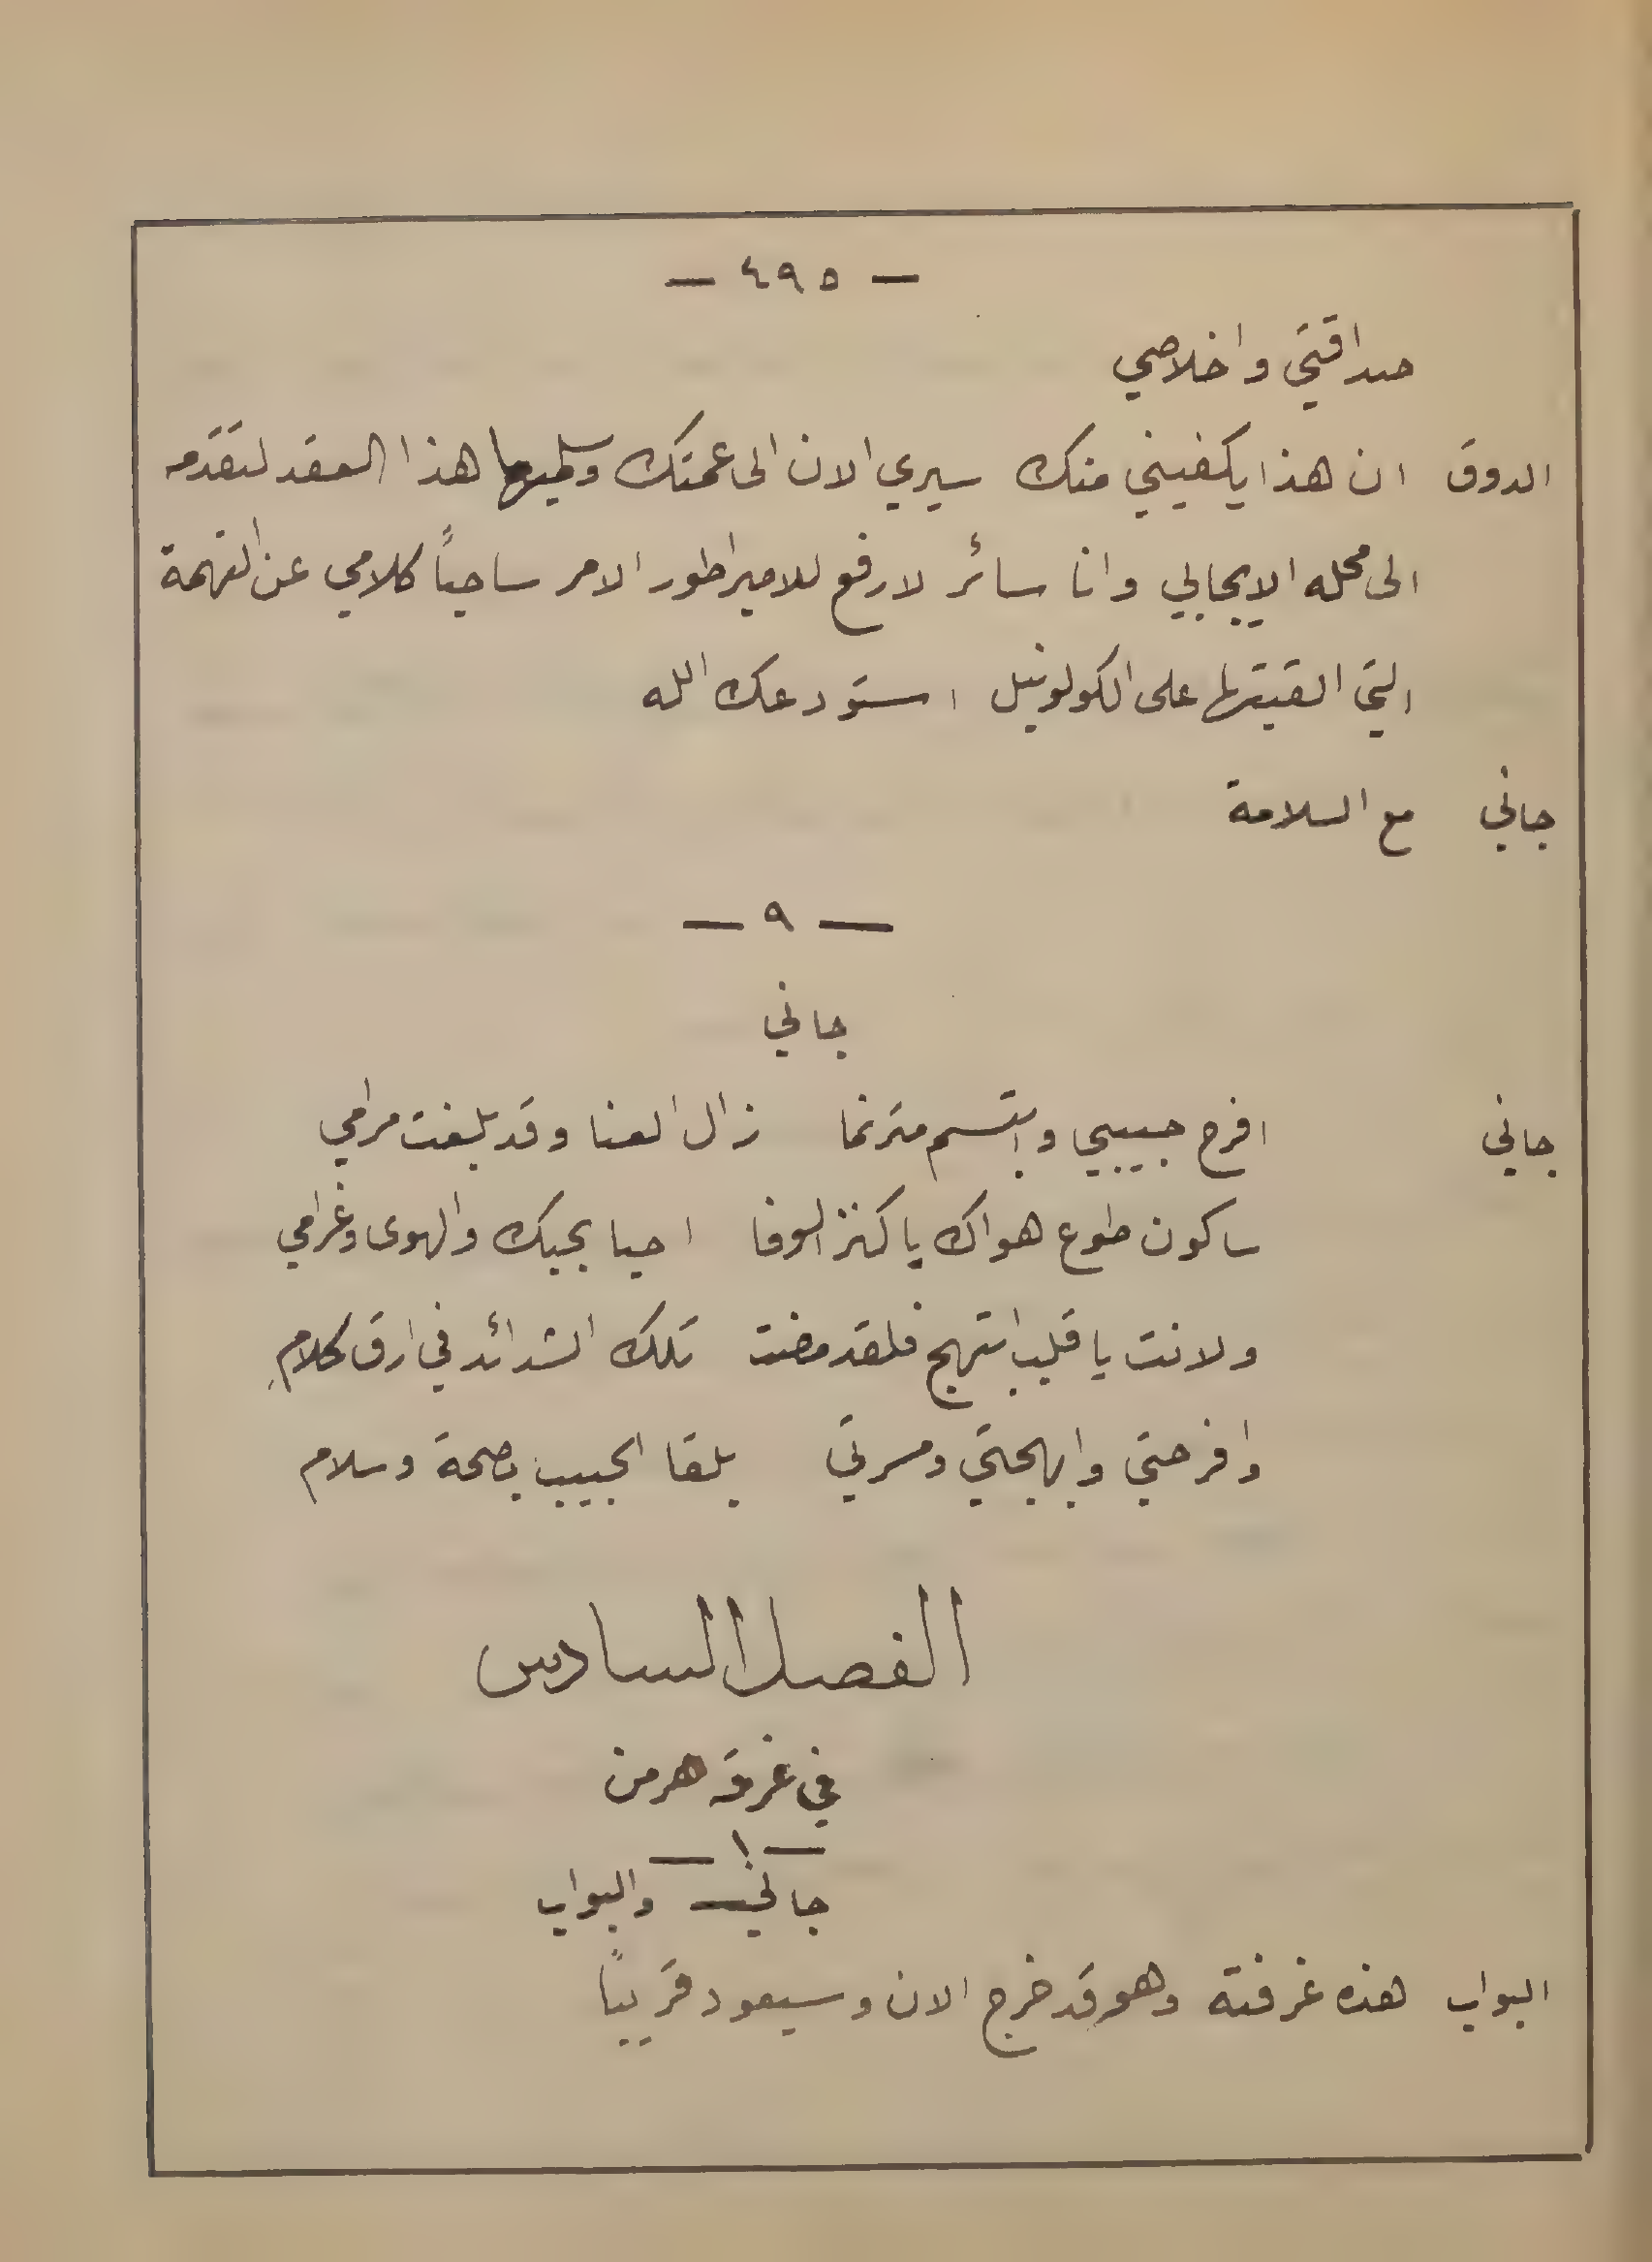 — ٤٩٥ —
صداقتي واخلاصي
الدوق ان هذا يكفيني منك سيري الان الى عمتك وسلميها هذا العقد لتقدمه
الى محله الايجابي وانا سائر لارفع للامبراطور الامر ساحباً كلامي عن التهمة
التي القيتها على الكولونيل استودعك الله
جاني مع السلامة
— ٩ —
جاني
جاني افرح حبيبي وابتسم مترنما زال العنا وقد بلغت مرامي
ساكون طوع هواك يا كنز الوفا احيا بحبك والهوى وغرامي
ولانت يا قلب ابتهج فلقد مضت تلك الشدائد في ارق كلام
وافرحتي وابهجتي ومسرتي بلقا الحبيب بصحة وسلام
الفصل السادس
في غرفة هرمن
— ١ —
جاني والبواب
البواب هذه غرفته وهو قد خرج الان وسيعود قريباً